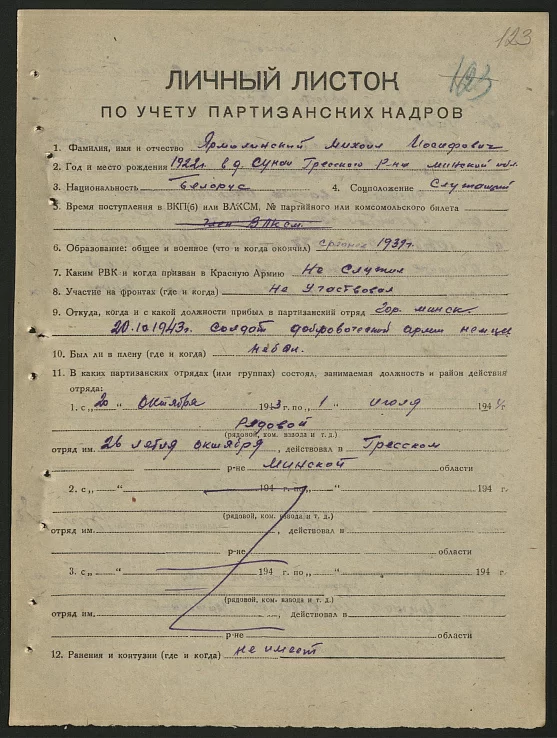 123
123
ЛИЧНЫЙ ЛИСТОК
ПО УЧЕТУ ПАРТИЗАНСКИХ КАДРОВ
1. Фамилия, имя и отчество Ярмолинский Михаил Иосифович
2. Год и место рождения 1922г. в д. Сунаи Гресского р-на Минской обл.
3. Национальность белорус 4. Соцположение Служащий
5. Время поступления в ВКП(б) или ВЛКСМ, № партийного или комсомольского билета
Член ВЛКСМ
6. Образование: общее и военное (что и когда окончил) среднее 1939г.
7. Каким РВК и когда призван в Красную Армию Не Служил
8. Участие на фронтах (где и когда) Не Участвовал
9. Откуда, когда и с какой должности прибыл в партизанский отряд Гор. Минск
20.10.1943г. Солдат армии
10. Был ли в плену (где и когда) не был.
11. В каких партизанских отрядах (или группах) состоял, занимаемая должность и район действия
отряда:
1. с „20“ октября 1943 г. по „1“ июля 1944 г
Рядовой
(рядовой, ком. взвода и т. д.)
отряд им. 26 летия октября, действовал в Гресском
р-не Минской области
2. с „ “ 194 г. по „ “ 194 г.
(рядовой, ком. взвода и т. д.)
отряд им. , действовал в
р-не области
3. с „ “ 194 г. по „ “ 194 г.
(рядовой, ком. взвода и т. д.)
отряд им. , действовал в
р-не области
12. Ранения и контузии (где и когда) не имеет